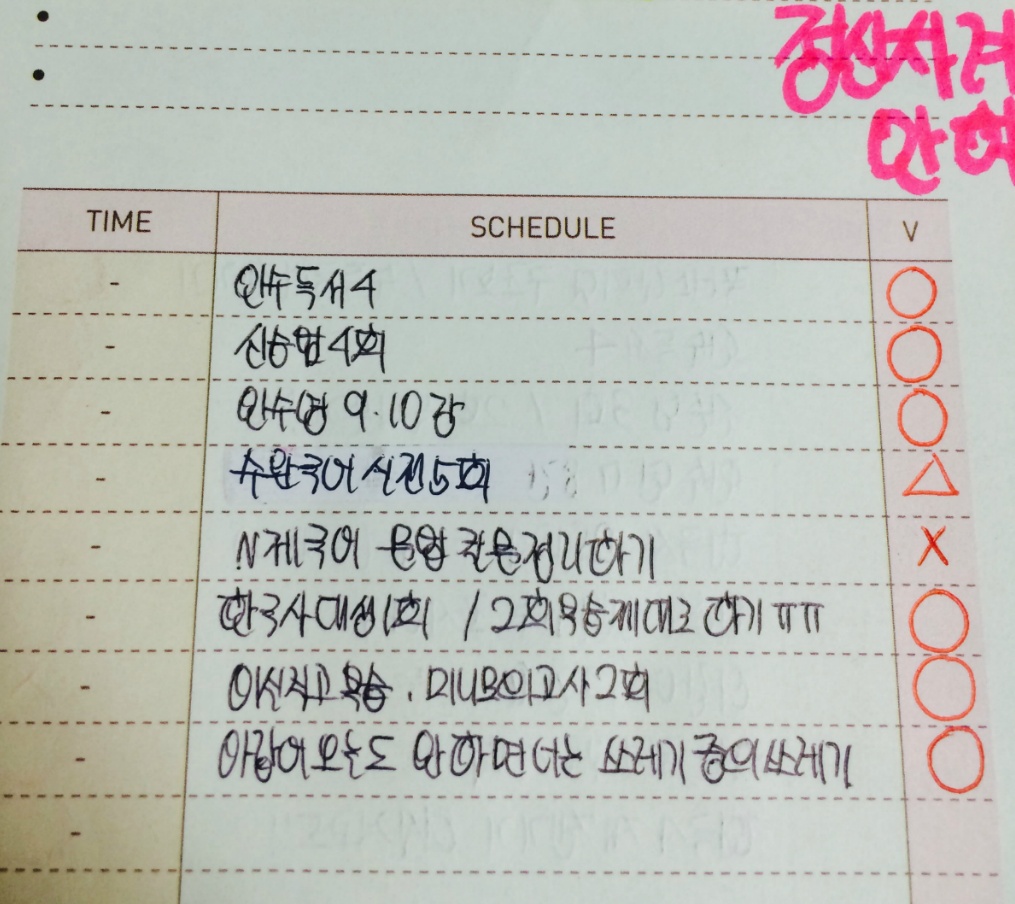 정신차려
안해
TIME SCHEDULE V
- 인수독서4 ○
- 신승범4회 ○
- 인수영 9·10강 ○
- 수완국어 실전5회 △
- N제국어 문법 정리하기 X
- 한국사대성1회 / 2회복습제대로 하기 ㅠㅠ ○
- 이신지고복습. 미니B모의고사2회 ○
- 아랍어 오늘도 안하면 너는 쓰레기 중의 쓰레기 ○
-